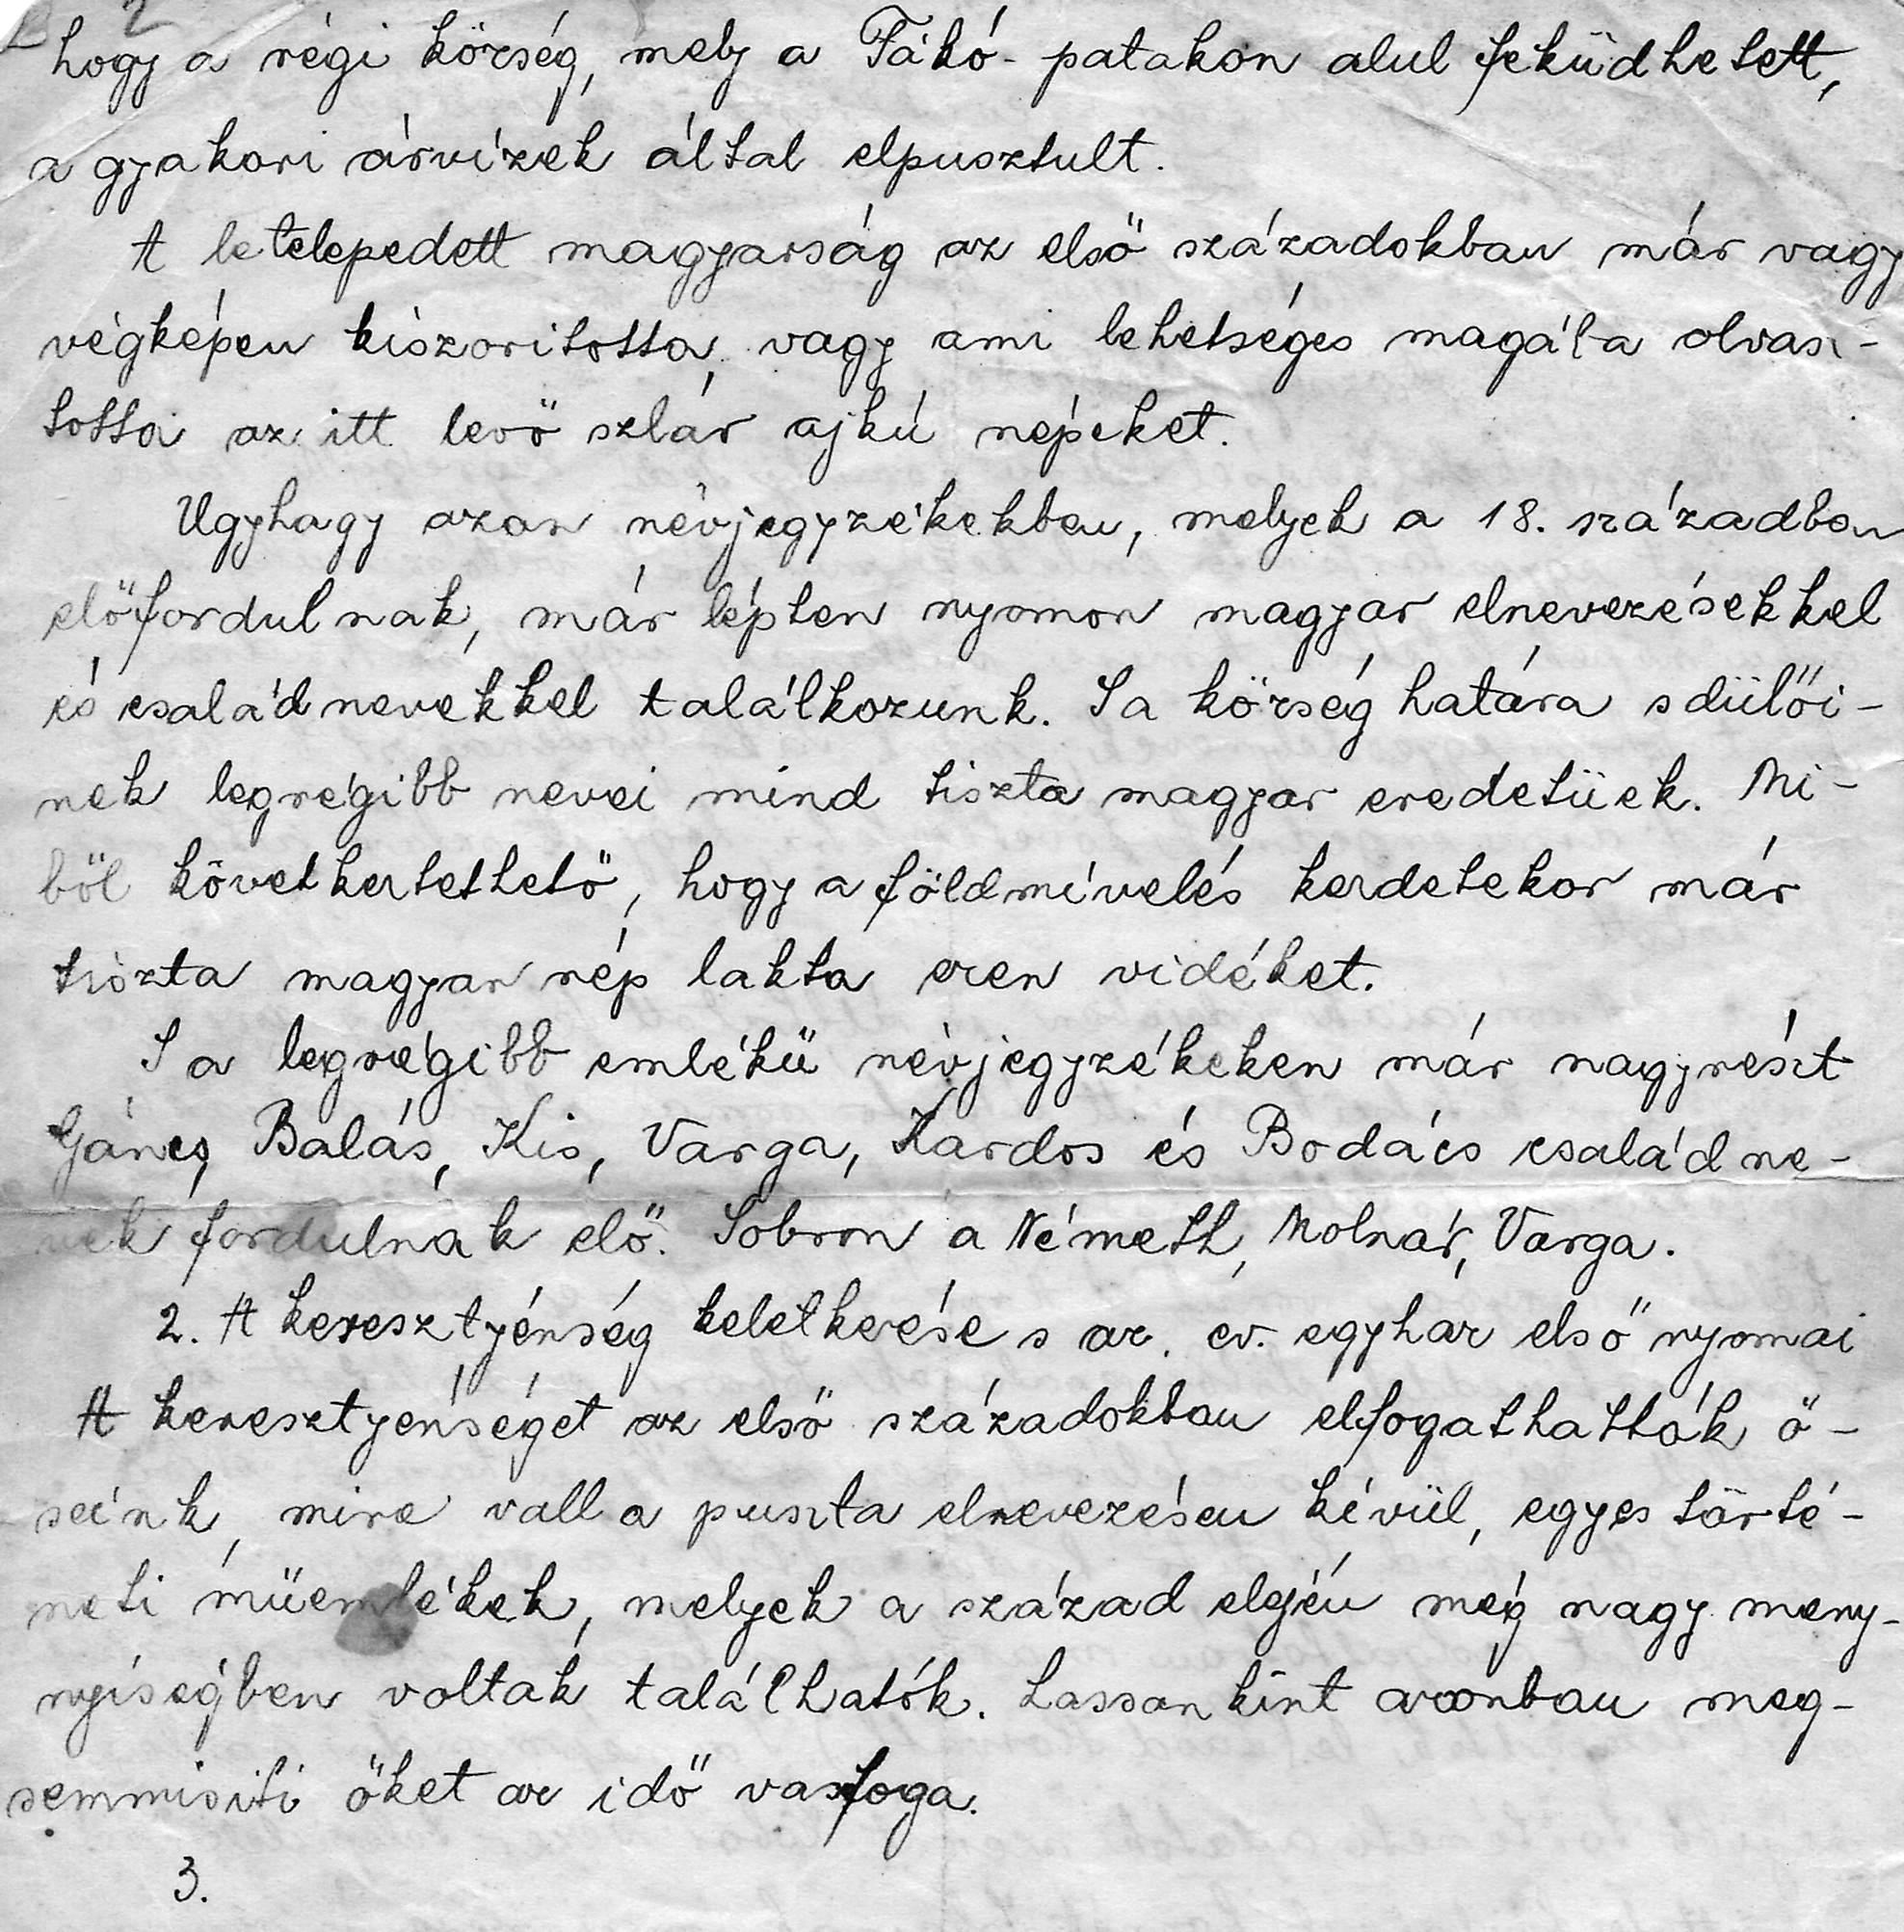 2
hogy a régi község, mely a Fákó-patakon alul feküdhetett,
a gyakori árvizek által elpusztult.
A letelepedett magyarság az első századokban már vagy
végképen kiszoritotta, vagy ami lehetséges magába olvasz-
totta az itt levő szláv ajkú népeket.
Ugyhagy azon névjegyzékekben, melyek a 18. században
előfordulnak, már lépten nyomon magyar elnevezésekkel
és családnevekkel találkozunk. S a község határa s dülői-
nek legrégibb nevei mind tiszta magyar eredetüek. Mi-
ből következtethető, hogy a földmívelés kezdetekor már
tiszta magyar nép lakta ezen vidéket.
S a legrégibb emlékü névjegyzékeken már nagyrészt
Gáncs, Balás, Kis, Varga, Kardos és Bodács családne-
vek fordulnak elő. Sobron a Németh, Molnár, Varga.
2. A keresztyénség keletkezése s az. ev. egyház első nyomai
A keresztyénséget az első századokban elfogathatták ő-
seink, mire vall a puszta elnevezésen kívül, egyes törté-
neti müemlékek, melyek a század elején még nagy meny-
nyiségben voltak találhatók. Lassankint azonban meg-
semmisiti őket az idő vasfoga.
3.